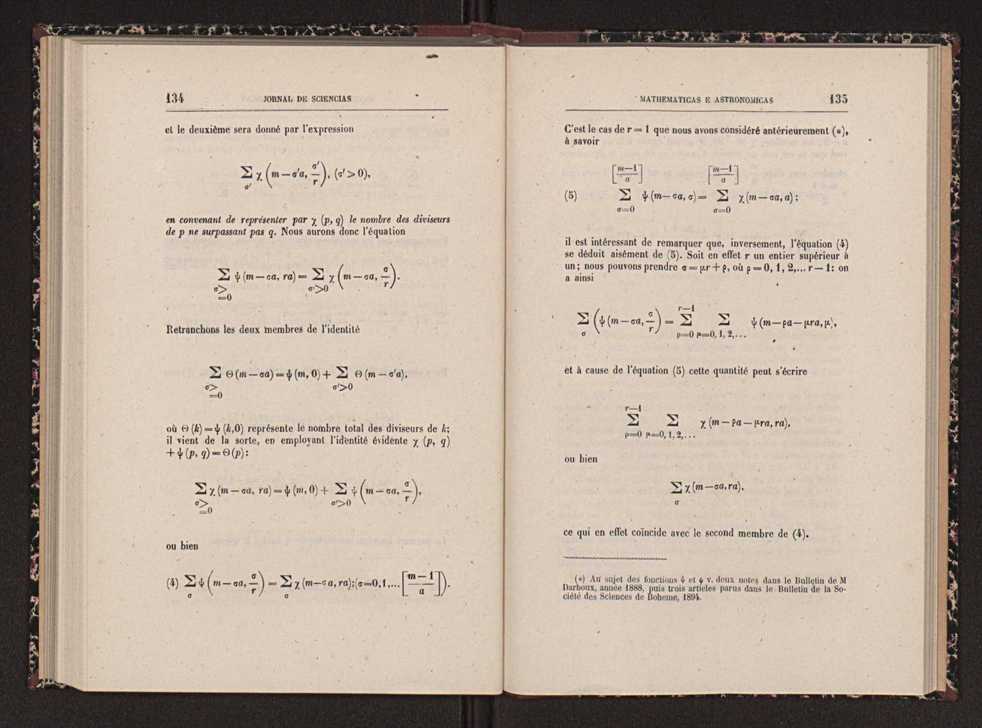 134 JORNAL DE SCIENCIAS
et le deuxième sera donné par l'expression
Σ_{σ'} χ (m — σ'a, σ'/r), (σ' > 0),
en convenant de représenter par χ (p, q) le nombre des diviseurs
de p ne surpassant pas q. Nous aurons donc l'équation
Σ_{σ>=0} ψ (m — σa, ra) = Σ_{σ'>0} χ (m — σa, σ/r).
Retranchons les deux membres de l'identité
Σ_{σ>=0} Θ (m — σa) = ψ (m, 0) + Σ_{σ'>0} Θ (m — σ'a),
où Θ (k) = ψ (k,0) représente le nombre total des diviseurs de k;
il vient de la sorte, en employant l'identité évidente χ (p, q)
+ ψ (p, q) = Θ (p):
Σ_{σ>=0} χ (m — σa, ra) = ψ (m, 0) + Σ_{σ'>0} ψ (m — σa, σ/r),
ou bien
(4) Σ_σ ψ (m — σa, σ/r) = Σ_σ χ (m — σa, ra); (σ=0,1,... [m—1/a]).
MATHEMATICAS E ASTRONOMICAS 135
C'est le cas de r = 1 que nous avons considéré antérieurement (*),
à savoir
(5) Σ_{σ=0}^{[m—1/a]} ψ (m — σa, σ) = Σ_{σ=0}^{[m—1/a]} χ (m — σa, a);
il est intéressant de remarquer que, inversement, l'équation (4)
se déduit aisément de (5). Soit en effet r un entier supérieur à
un; nous pouvons prendre σ = μr + ρ, où ρ = 0, 1, 2,... r — 1: on
a ainsi
Σ_σ (ψ (m — σa, σ/r) = Σ_{ρ=0}^{r—1} Σ_{μ=0, 1, 2,...} ψ (m — ρa — μra, μ),
et à cause de l'équation (5) cette quantité peut s'écrire
Σ_{ρ=0}^{r—1} Σ_{μ=0, 1, 2,...} χ (m — ρa — μra, ra),
ou bien
Σ_σ χ (m — σa, ra),
ce qui en effet coïncide avec le second membre de (4).
(*) Au sujet des fonctions ψ et χ v. deux notes dans le Bulletin de M
Darboux, année 1888, puis trois articles parus dans le Bulletin de la So-
ciété des Sciences de Boheme, 1894.